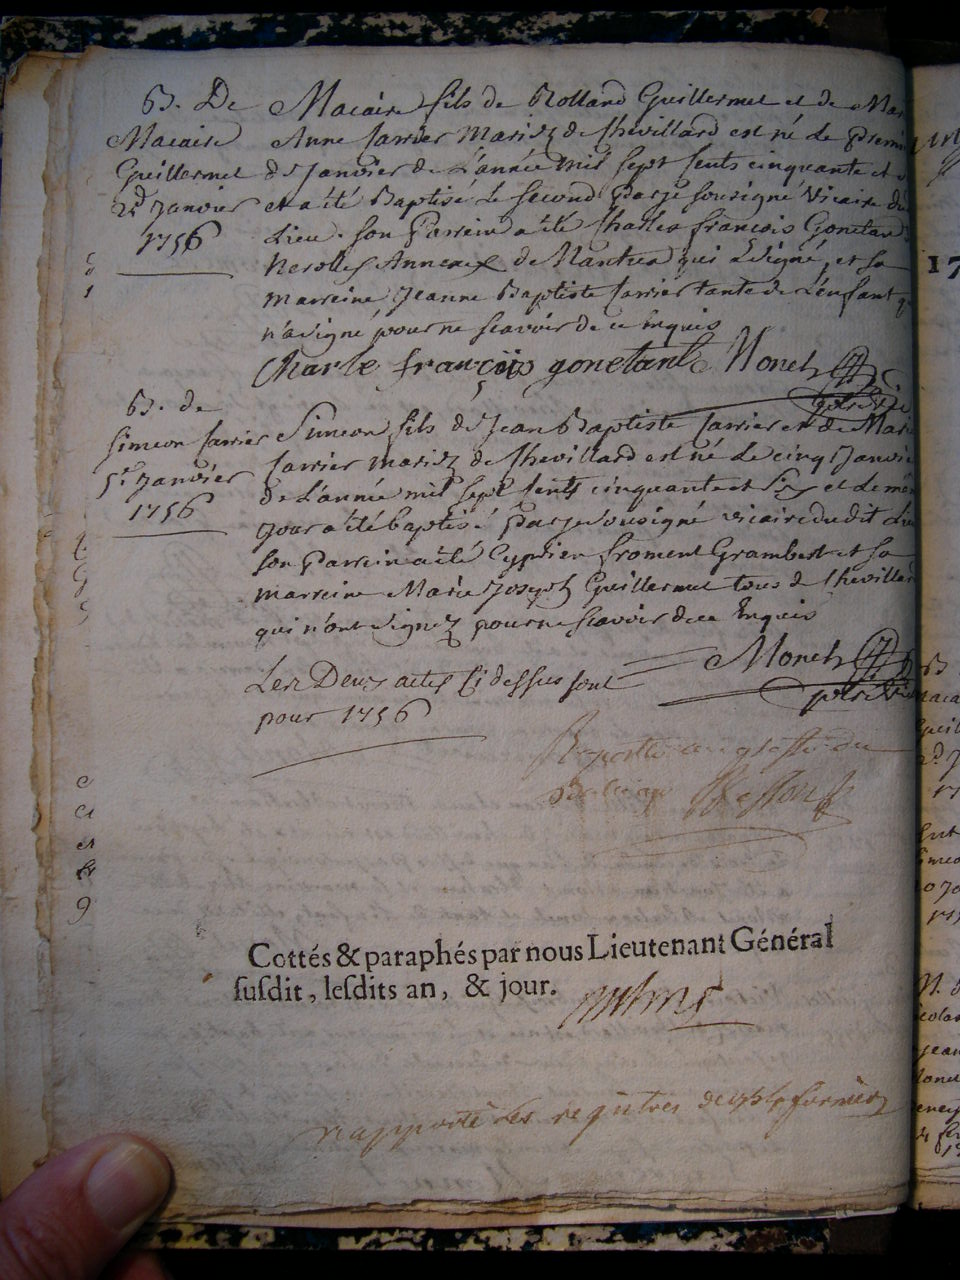 B. De
Macaire
Guillermet
2d Janvier
1756
Macaire fils de Rolland Guillermet et de Mar
Anne Janier Mariez de Chevillard est né Le premi
de Janvier de L'année mil sept cents cinquante et
et a été Baptisé Le second par je sousigné Vicaire du
Lieu. son Parrein a été Charles françois Gonetand
Nerolles Annexe de Nantua qui a signé, et sa
marreine Jeanne Baptiste Janier tante de L'enfant q
n'a signé pour ne scavoir de ce Enquis
Charle françois gonetant Monet
ptre Vic
B. de
Simeon Janier
5e Janvier
1756
Simeon fils de Jean Baptiste Janier et de Marie
Janier mariez de Chevillard est né Le cinq Janvie
de L'année mil sept cents cinquante et Six et le mem
jour a été baptisé par je sousigné vicaire dudit Lieu
son Parrein a été Cyprien froment Grambert et sa
marreine Marie Joseph Guillermet tous de Chevillard
qui n'ont signez pour ne scavoir de ce Enquis
Monet
ptre Vic
Les Deux actes Ci dessus sont
pour 1756
Raporté au greffe du
Cottés & paraphés par nous Lieutenant Général
susdit, lesdits an, & jour.
rapporté Les registres de